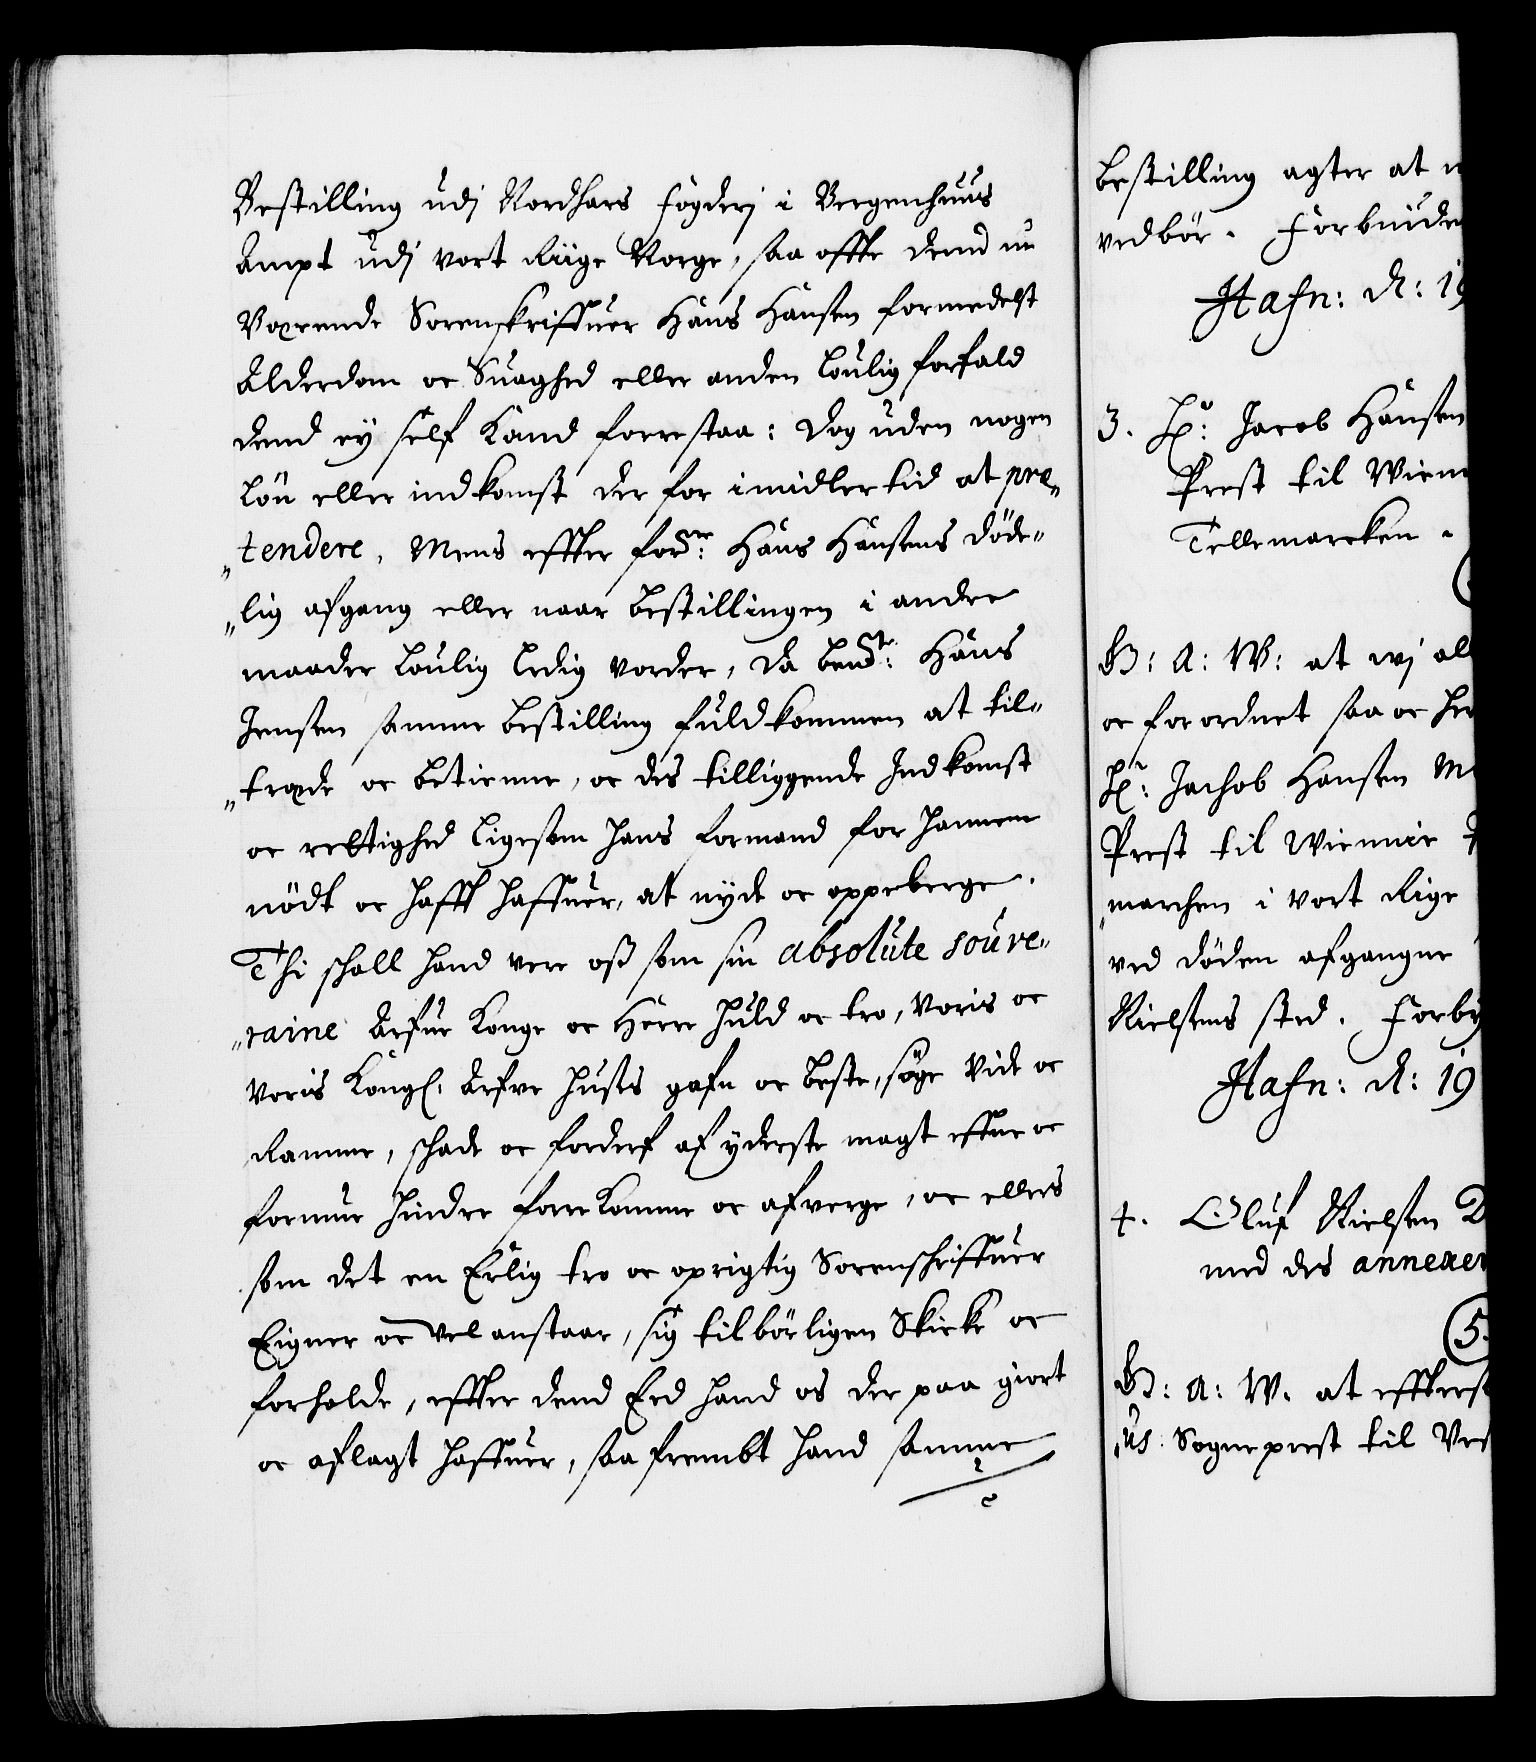 Bestilling udj Nordhars fögderj i Bergenhuus
Ampt udj vort Riige Norge, saa offte dend nu
Værende Sorenskriffuer Hans Hansen formedelst
Alderdom oc Suaghed eller anden loulig forfald
dend ey self kand forrestaa: dog uden nogen
Lön eller indkomst der for imidlertid at pre„
„tendere, Mens effter fors.ne: Hans Hansens döde„
„lig afgang eller naar bestillingen i andre
maader loulig ledig vorder, da bem.te: Hans
Jensen samme bestilling fuldkommen at til„
„træde oc betienne, oc des tilliggende Indkomst
oc rettighed ligesom hans formand for hannem
nödt oc hafft haffuer, at nyde oc oppeberge.
Thi schall hand vere oss som sin absolute souve„
„raine Arfue Konge oc Herre huld oc tro, voris oc
voris Kongl. Arfve huses gafn oc beste, söge vide oc
Ramme, schade oc forderf af yderste magt effne oc
formue hindre forrekomme oc afverge, oc ellers
som det en Erlig tro oc oprigtig Sorenschriffuer
Eigner oc vel anstaar, sig tilbörligen Skicke oc
forholde, effter dend Eed hand os der paa giort
oc aflagt haffuer, saa frembt hand samme
bestilling agter at
vedbör. Forbiude
Hafn: d: 19
3. Hr: Jacob Hansen
Prest til Wien
Tellemarcken.
G: A: W: at wj all
oc forordnet saa oc her
Hr: Jachob Hansen M
Prest til Wiennie
„marchen i vort Rige
ved döden afgangne
Nielsens sted. Forby
Hafn: d: 19
4. Oluf Nielsen
med des annexer
5.
G: A: W. at effters
us Sogneprest til Ves